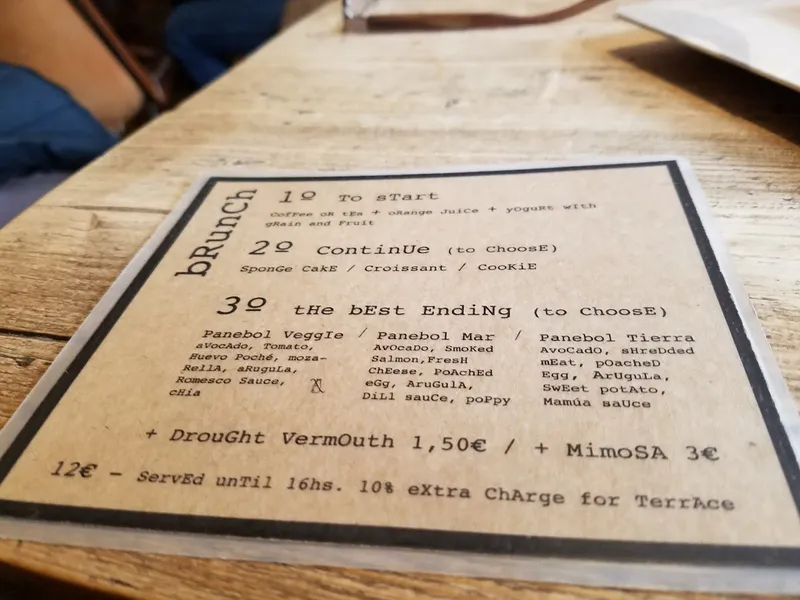 bRunCh
1º To sTart
CofFee oR tEa + oRange JuiCe + yOguRt wIth
gRain and Fruit
2º ContinUe (to ChoosE)
SponGe CakE / Croissant / CooKiE
3º tHe bEst EndiNg (to ChoosE)
Panebol VeggIe / Panebol Mar / Panebol Tierra
aVocAdo, Tomato,
Huevo Poché, moza-
RelLA, aRuguLa,
Romesco Sauce,
cHia
AvOcaDo, SmoKed
Salmon,FresH
ChEese, PoAchEd
eGg, AruGulA,
DiLl sauCe, poPpy
AvocadO, sHreDded
mEat, pOacheD
Egg, ArUguLa,
SwEet potAto,
Mamúa saUce
+ DrouGht VermOuth 1,50€ / + MimoSA 3€
12€ - ServEd unTil 16hs. 10% eXtra ChArge for TerrAce